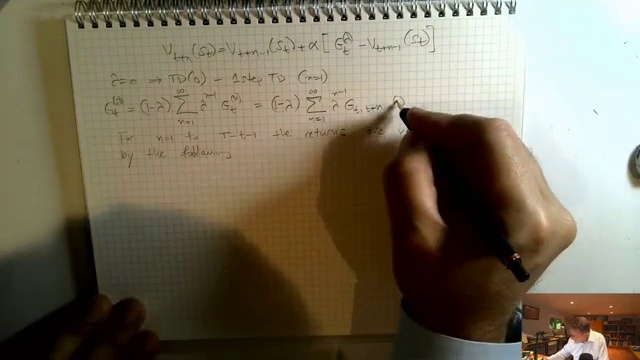 V_{t+n}(S_t) = V_{t+n-1}(S_t) + α [ G_t^{(λ)} - V_{t+n-1}(S_t) ]
λ=0 ⇒ TD(0) - 1 step TD (n=1)
G_t^{(λ)} = (1-λ) Σ_{n=1}^{∞} λ^{n-1} G_t^{(n)} = (1-λ) Σ_{n=1}^{∞} λ^{n-1} G_{t, t+n}
For n=1 to T-t-1 the returns are
by the following